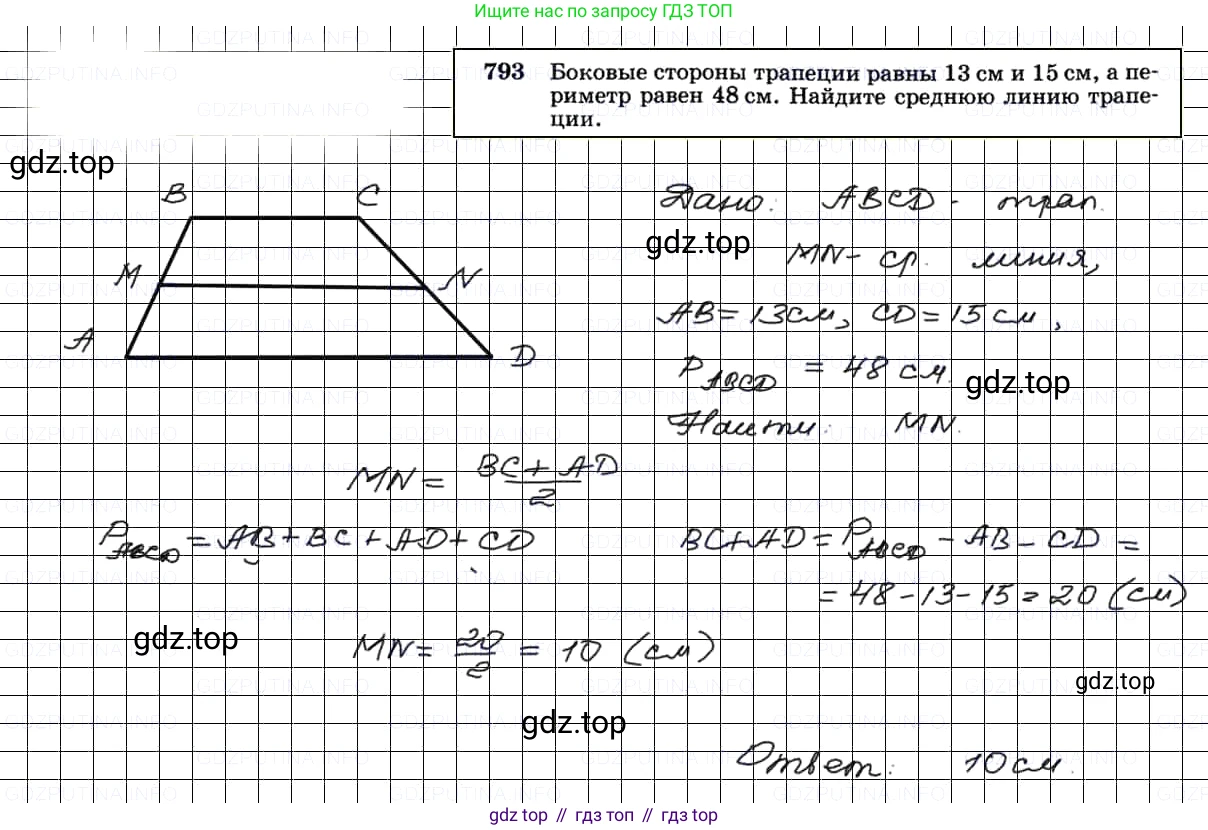 Ищите нас по запросу ГДЗ ТОП
793 Боковые стороны трапеции равны 13 см и 15 см, а пе-
риметр равен 48 см. Найдите среднюю линию трапе-
ции.
gdz.top
B C
Дано: ABCD - трап.
gdz.top
MN - ср. линия,
M N
AB = 13 см, CD = 15 см,
A D
P ABCD = 48 см.
gdz.top
Найти: MN.
MN = BC + AD / 2
P ABCD = AB + BC + AD + CD
BC + AD = P ABCD - AB - CD =
= 48 - 13 - 15 = 20 (см)
gdz.top
MN = 20 / 2 = 10 (см)
gdz.top
gdz.top
Ответ: 10 см.
gdz top // гдз топ // гдз top
GDZPUTINA.INFO